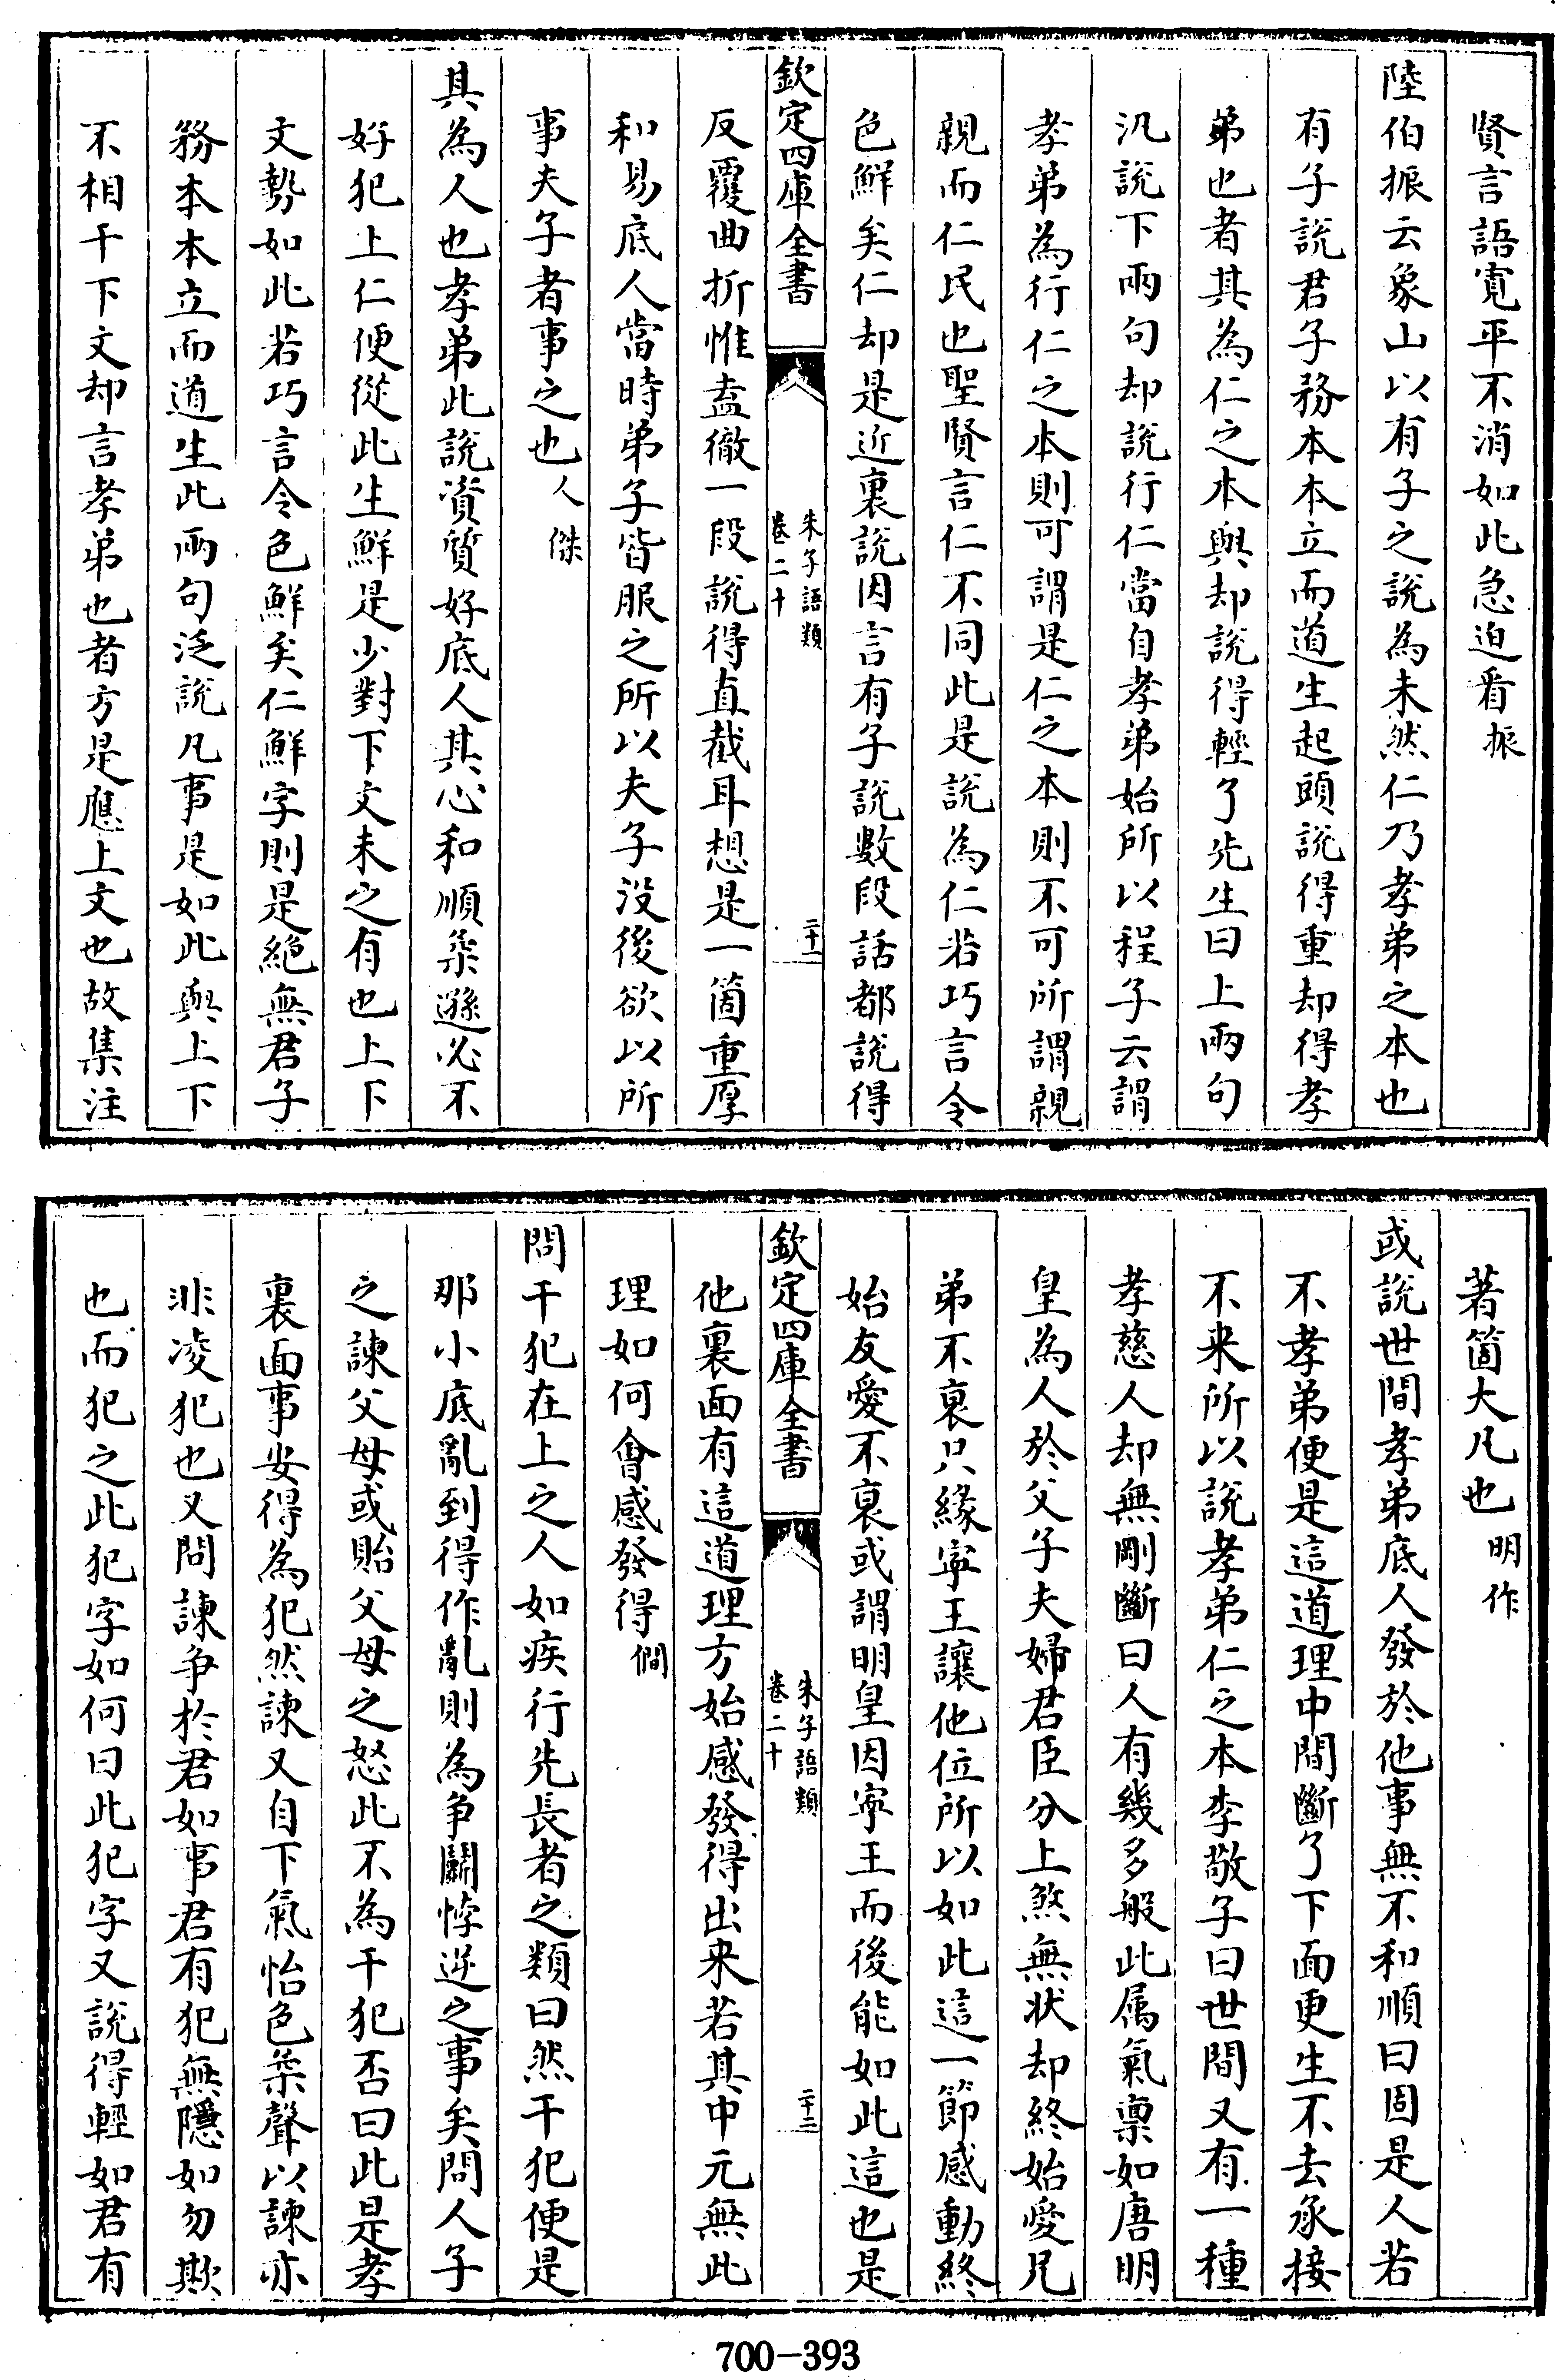 賢言語寛平不消如此急迫看振
陸伯振云象山以有子之說為未然仁乃孝弟之本也
有子說君子務本本立而道生起頭說得重却得孝
弟也者其為仁之本與却說得輕了先生曰上兩句
汎說下兩句却說行仁當自孝弟始所以程子云謂
孝弟為行仁之本則可謂是仁之本則不可所謂親
親而仁民也聖賢言仁不同此是說為仁若巧言令
色鮮矣仁却是近裏說因言有子說數段話都說得
欽定四庫全書
朱子語類
卷二十
二十一
反覆曲折惟盍徹一段說得直截耳想是一箇重厚
和易底人當時弟子皆服之所以夫子没後欲以所
事夫子者事之也人傑
其為人也孝弟此說資質好底人其心和順柔遜必不
好犯上仁便從此生鮮是少對下文未之有也上下
文勢如此若巧言令色鮮矣仁鮮字則是絶無君子
務本本立而道生此兩句泛說凡事是如此與上下
不相干下文却言孝弟也者方是應上文也故集注
著箇大凡也明作
或說世間孝弟底人發於他事無不和順曰固是人若
不孝弟便是這道理中間斷了下面更生不去承接
不来所以說孝弟仁之本李敬子曰世間又有一種
孝慈人却無剛斷曰人有幾多般此属氣禀如唐明
皇為人於父子夫婦君臣分上煞無状却終始愛兄
弟不衰只緣寧王讓他位所以如此這一節感動終
始友愛不衰或謂明皇因寧王而後能如此這也是
欽定四庫全書
朱子語類
卷二十
二十二
他裏面有這道理方始感發得出来若其中元無此
理如何會感發得僩
問干犯在上之人如疾行先長者之類曰然干犯便是
那小底亂到得作亂則為争鬭悖逆之事矣問人子
之諫父母或貽父母之怒此不為干犯否曰此是孝
裏面事安得為犯然諫又自下氣怡色柔聲以諫亦
非凌犯也又問諫争於君如事君有犯無隱如勿欺
也而犯之此犯字如何曰此犯字又說得輕如君有
700-393